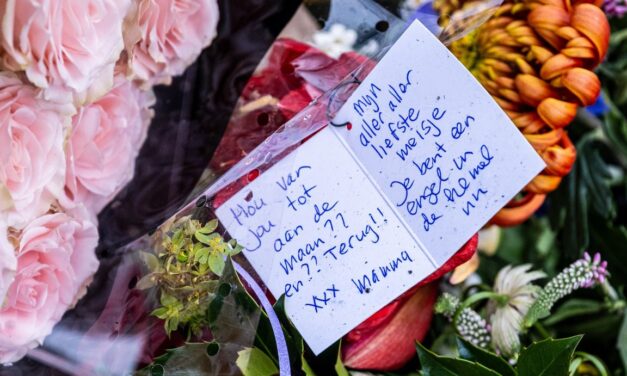 Hou van
jou tot
aan de
maan??
en?? Terug!!
xxx mamma
mijn
aller allar
liefste
meisje
Je bent een
engel in
de hemel
nn